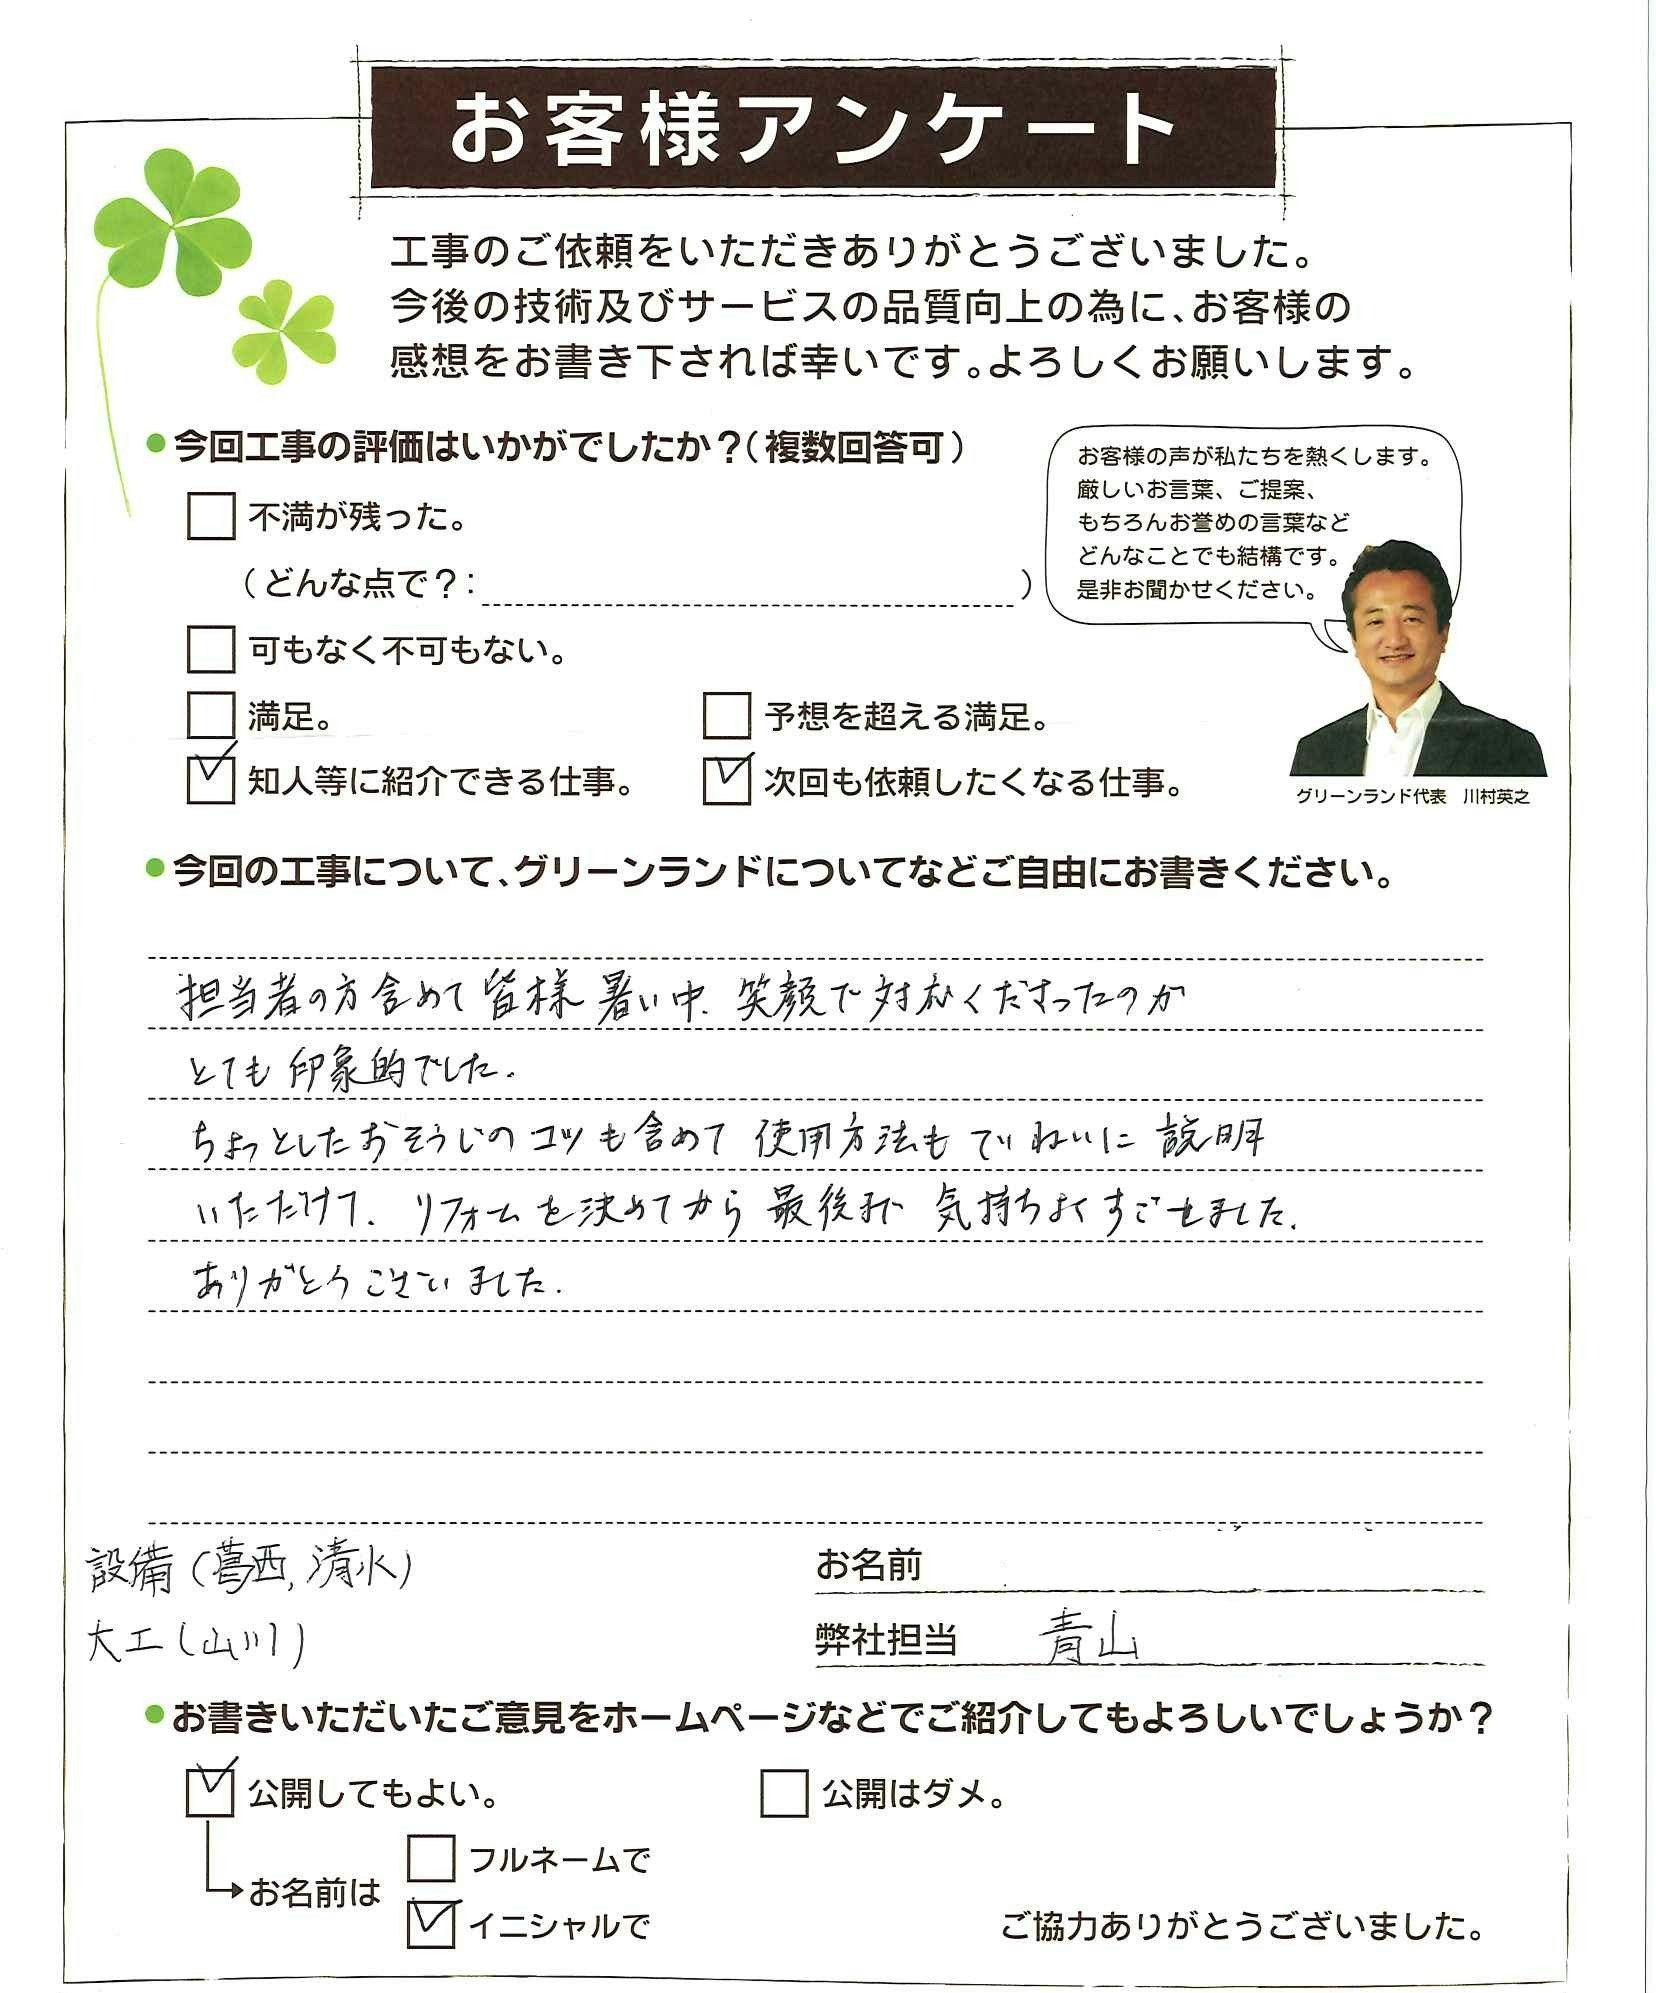 お客様アンケート
工事のご依頼をいただきありがとうございました。
今後の技術及びサービスの品質向上の為に、お客様の
感想をお書き下されば幸いです。よろしくお願いします。
●今回工事の評価はいかがでしたか？（複数回答可）
お客様の声が私たちを熱くします。
厳しいお言葉、ご提案、
もちろんお誉めの言葉など
どんなことでも結構です。
是非お聞かせください。
不満が残った。
（どんな点で？：　）
可もなく不可もない。
満足。　予想を超える満足。
知人等に紹介できる仕事。　次回も依頼したくなる仕事。
グリーンランド代表　川村英之
●今回の工事について、グリーンランドについてなどご自由にお書きください。
担当者の方含めて皆様暑い中、笑顔で対応くださったのが
とても印象的でした。
ちょっとしたおそうじのコツも含めて使用方法もていねいに説明
いただけて、リフォームを決めてから最後まで気持ちよくすごせました。
ありがとうございました。
設備（葛西，清水）
大工（山川）
お名前
弊社担当　青山
●お書きいただいたご意見をホームページなどでご紹介してもよろしいでしょうか？
公開してもよい。　公開はダメ。
お名前は
フルネームで
イニシャルで
ご協力ありがとうございました。